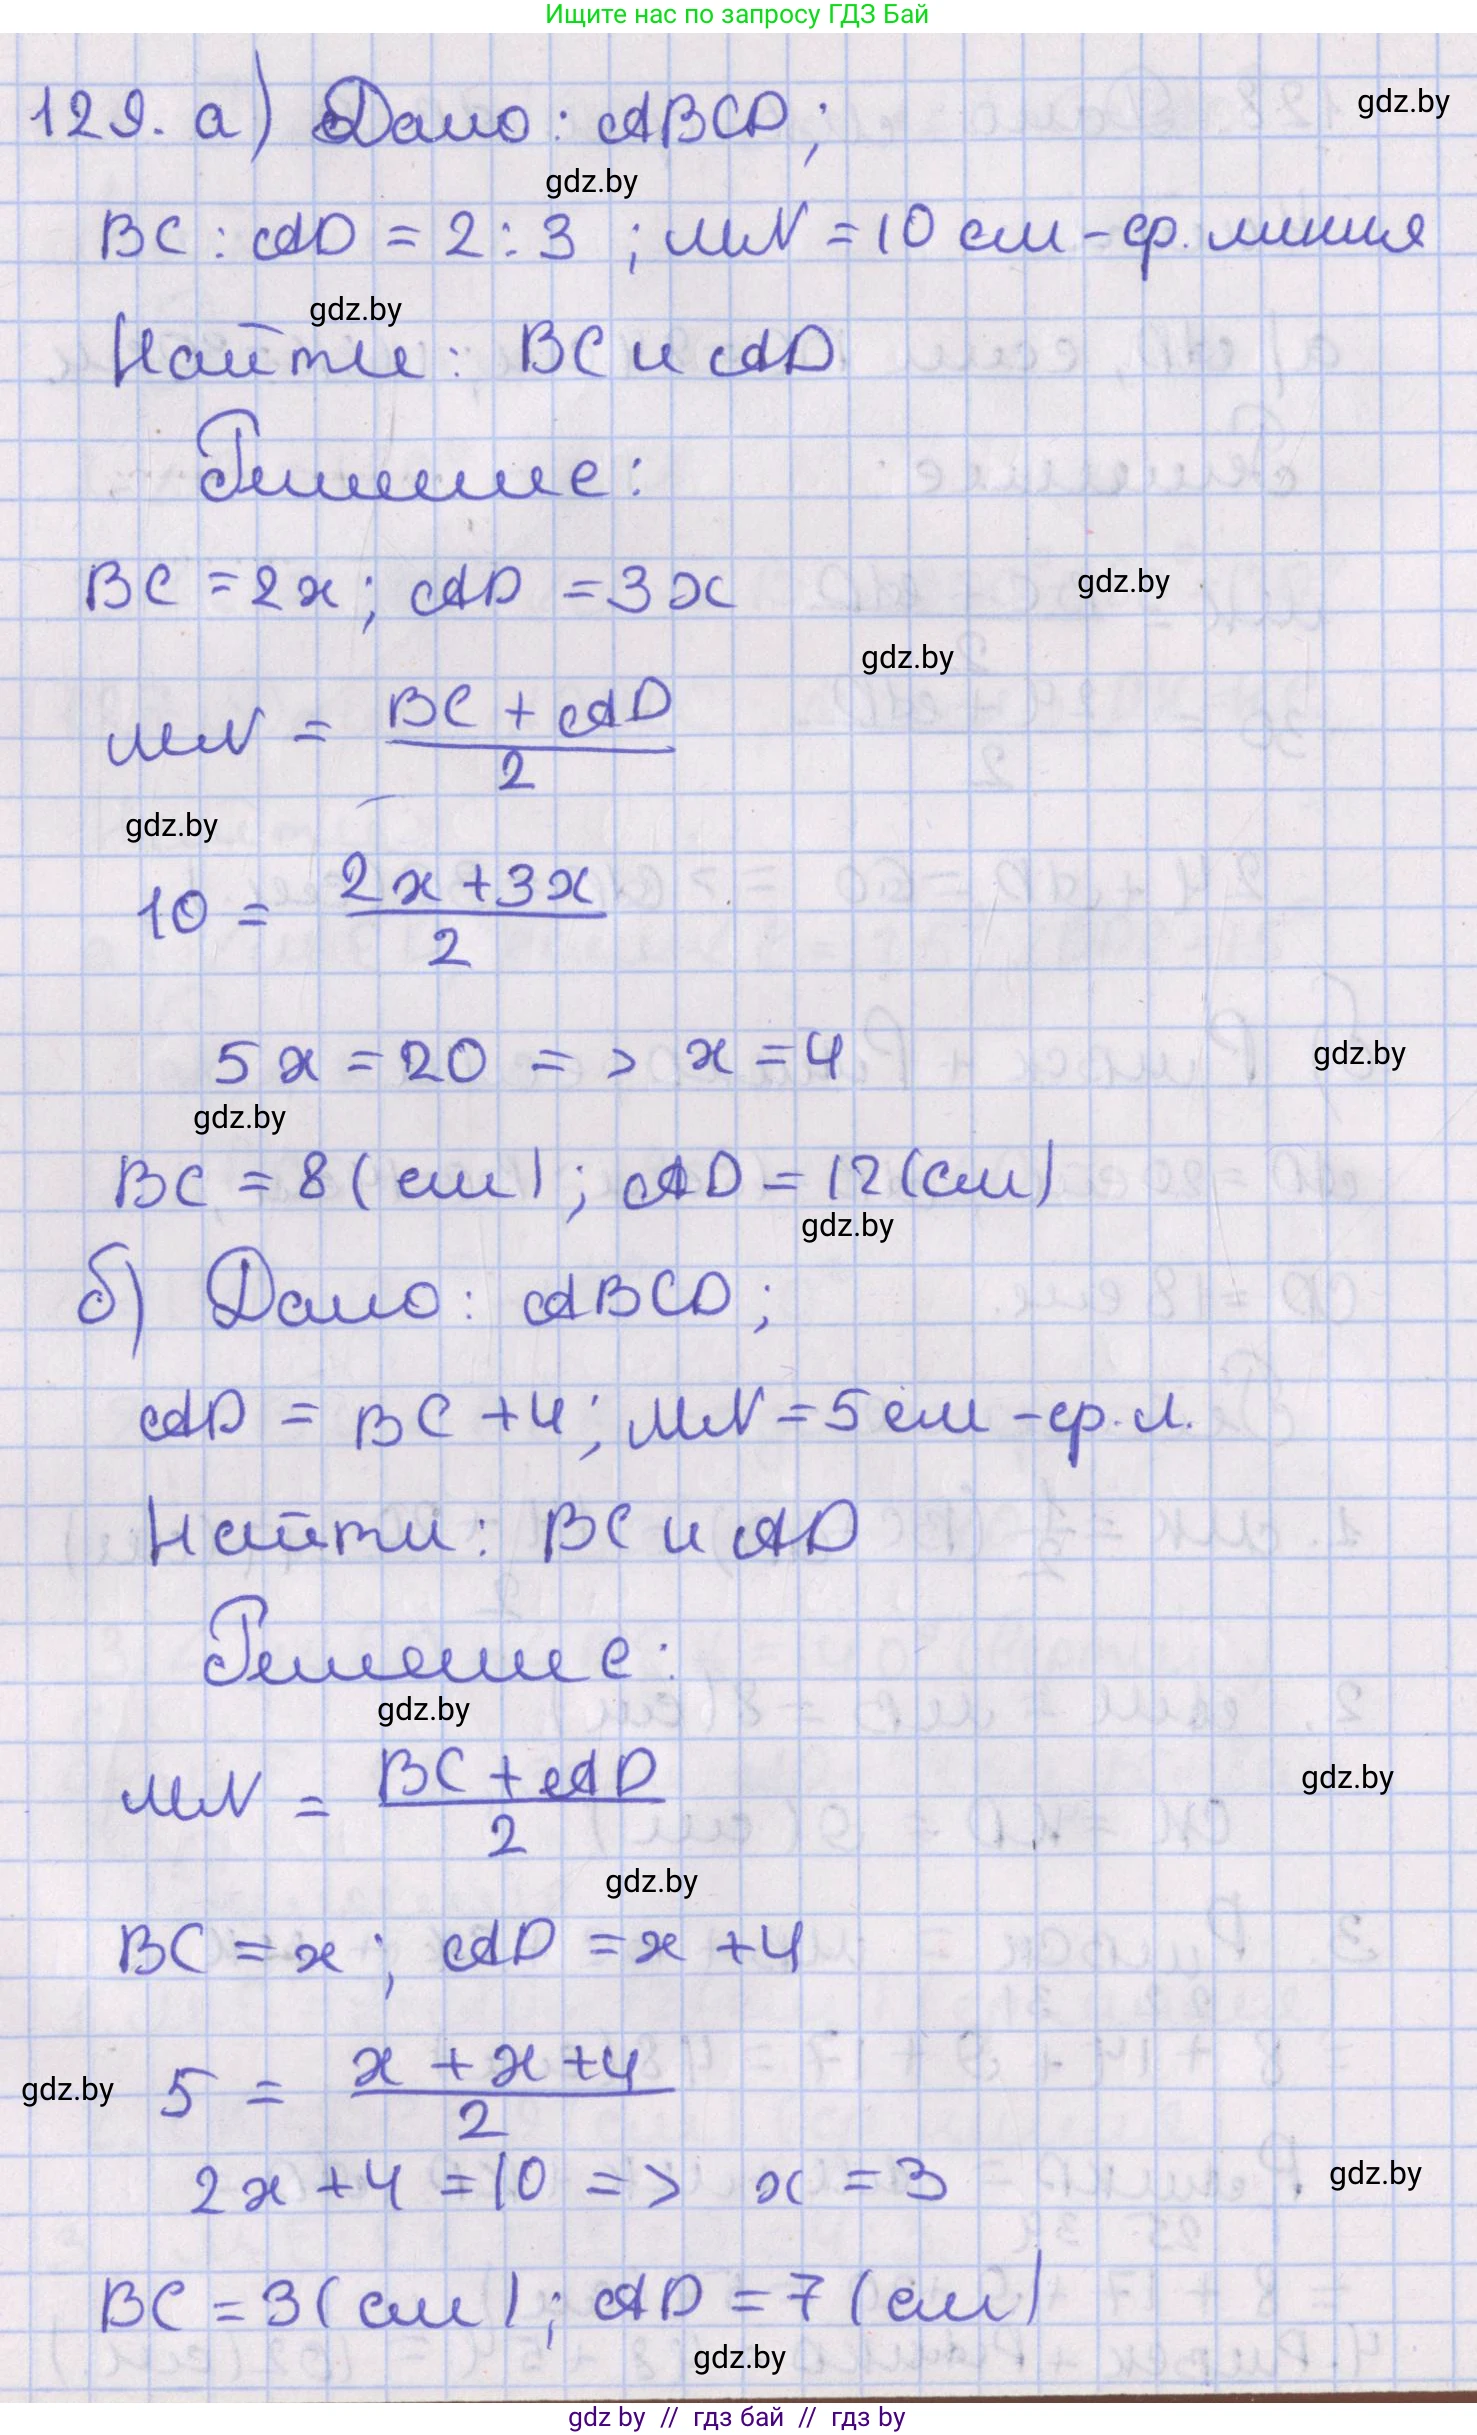 Ищите нас по запросу ГДЗ Бай
129. а) Дано: ABCD;
gdz.by
gdz.by
BC : AD = 2 : 3 ; MN = 10 см - ср. линия
gdz.by
Найти: BC и AD
Решение:
BC = 2x; AD = 3x
gdz.by
gdz.by
MN = (BC + AD)/2
gdz.by
10 = (2x + 3x)/2
5x = 20 => x = 4
gdz.by
gdz.by
BC = 8 (см); AD = 12 (см)
gdz.by
б) Дано: ABCD;
AD = BC + 4; MN = 5 см - ср. л.
Найти: BC и AD
Решение:
gdz.by
MN = (BC + AD)/2
gdz.by
gdz.by
BC = x; AD = x + 4
5 = (x + x + 4)/2
gdz.by
2x + 4 = 10 => x = 3
gdz.by
BC = 3 (см); AD = 7 (см)
gdz.by
gdz by // гдз бай // гдз by